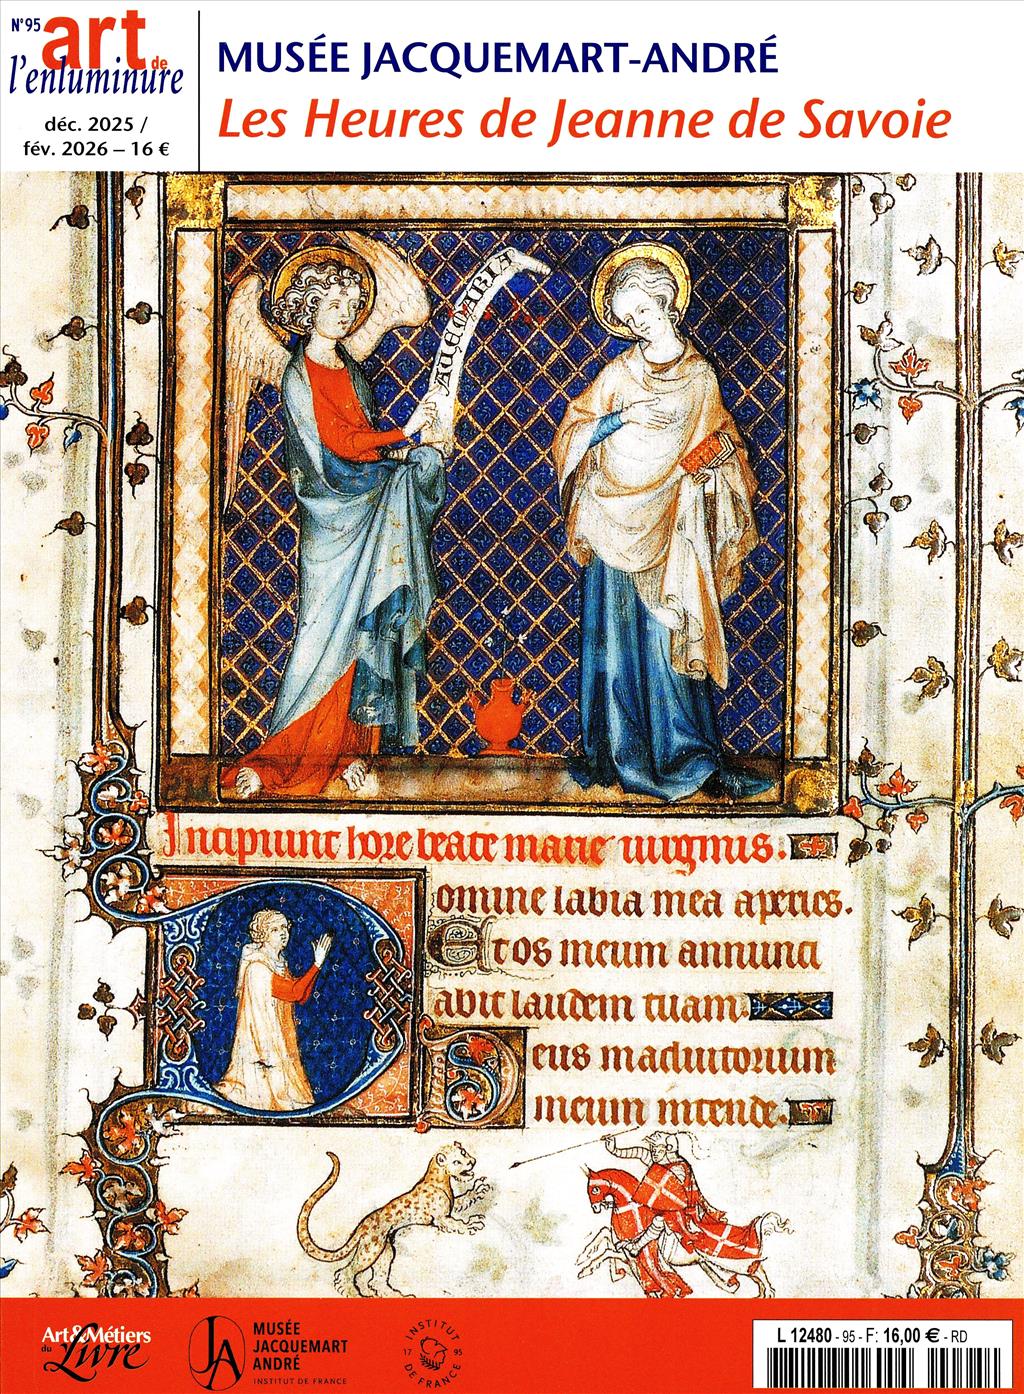 N°95
art
de
l'enluminure
déc. 2025 /
fév. 2026 – 16 €
MUSÉE JACQUEMART-ANDRÉ
Les Heures de Jeanne de Savoie
AVE MARIA
Incipiunt hore beate marie virginis.
Domine labia mea aperies.
Et os meum annunci
abit laudem tuam.
Deus in adiutorium
meum intende.
Art&Métiers
du
Livre
JA
MUSÉE
JACQUEMART
ANDRÉ
INSTITUT DE FRANCE
INSTITUT
17 95
DE FRANCE
L 12480 - 95 - F: 16,00 € - RD